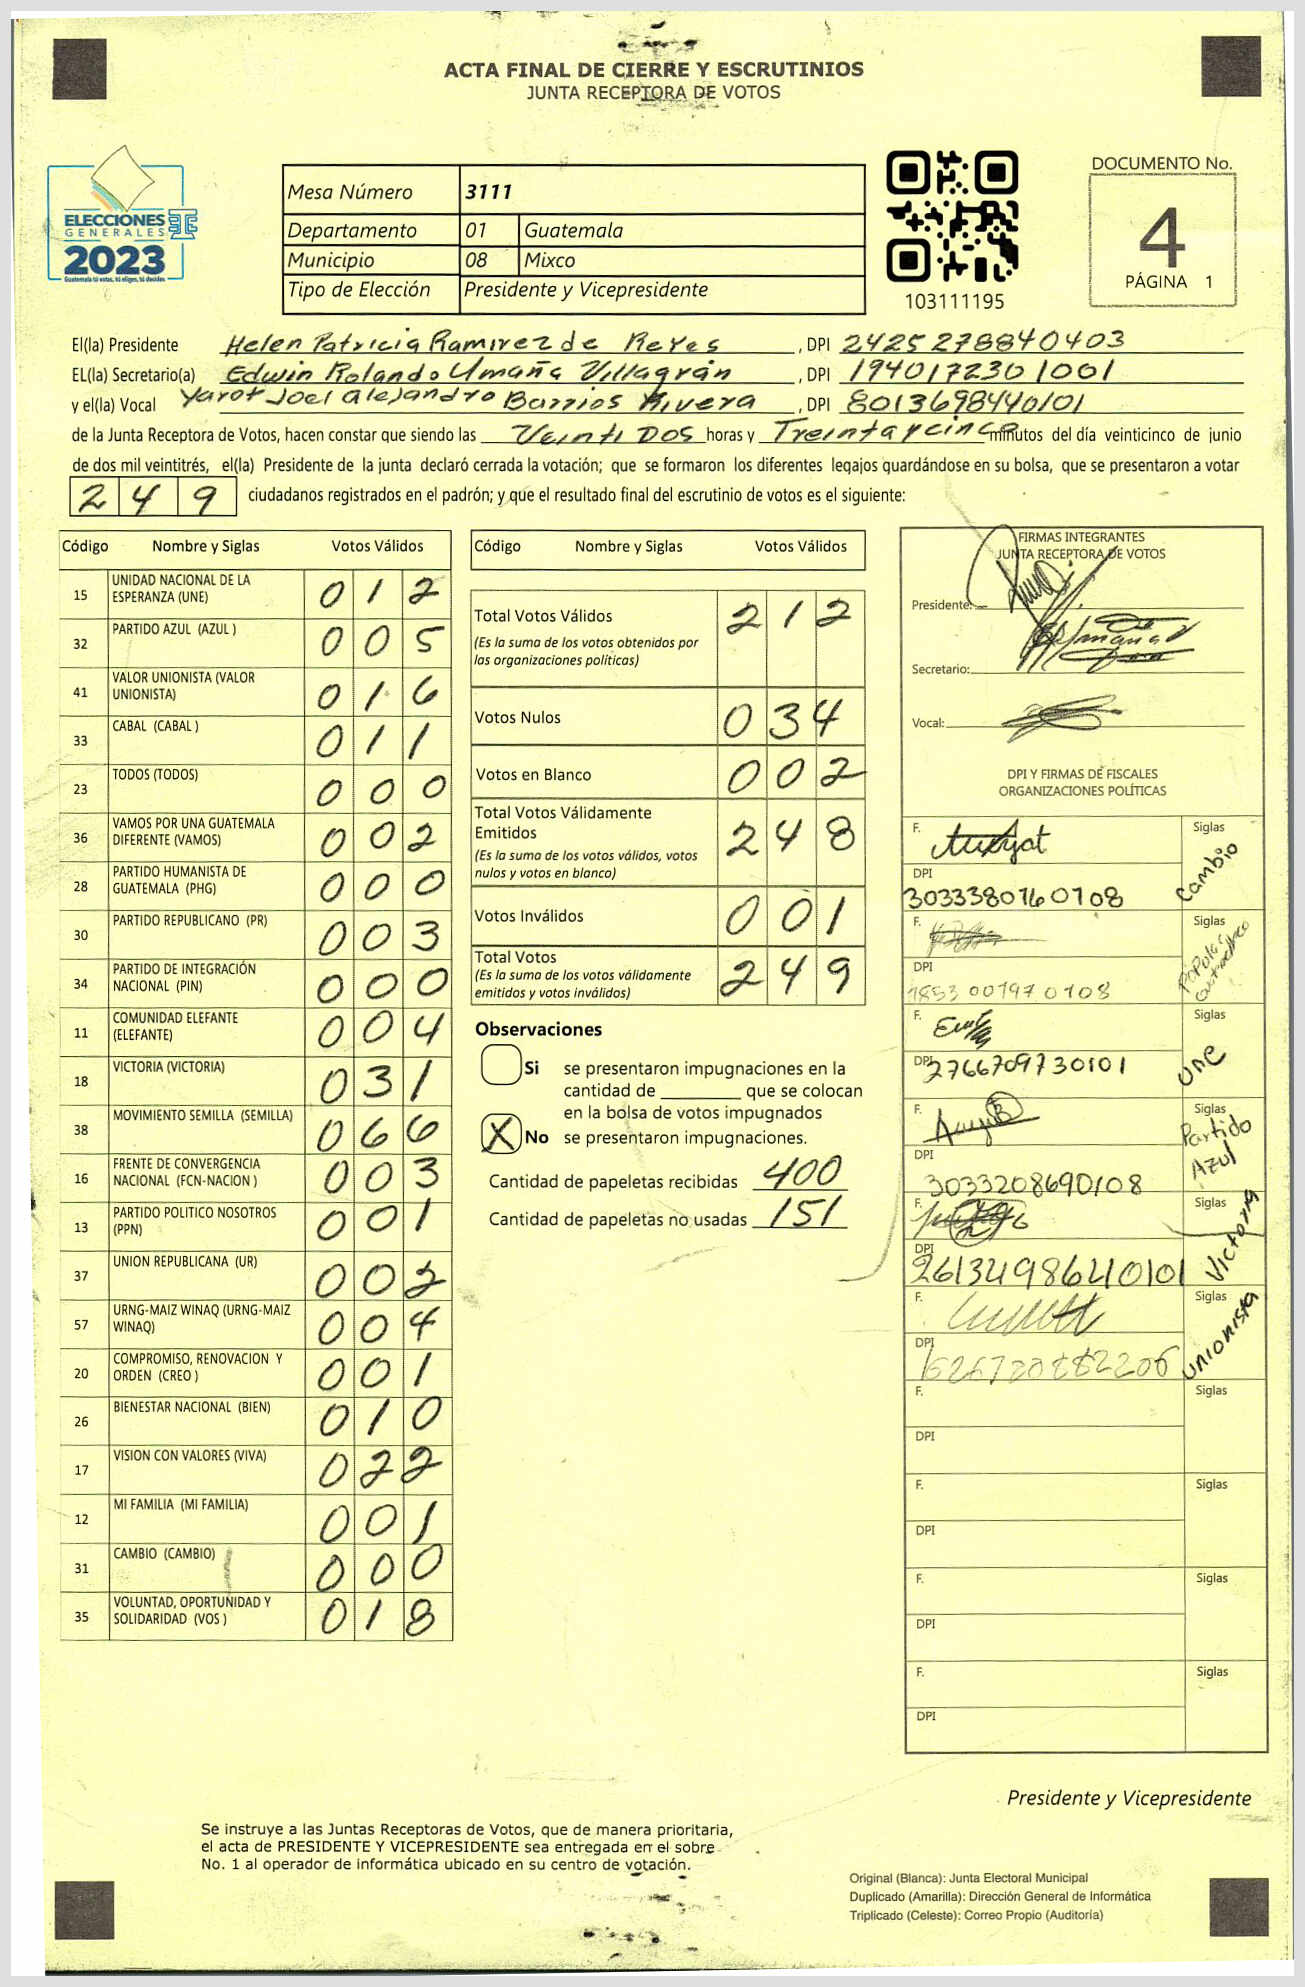 ACTA FINAL DE CIERRE Y ESCRUTINIOS
JUNTA RECEPTORA DE VOTOS
ELECCIONES
GENERALES
2023
Guatemala tú votas, tú eliges, tú decides
Mesa Número 3111
Departamento 01 Guatemala
Municipio 08 Mixco
Tipo de Elección Presidente y Vicepresidente
103111195
DOCUMENTO No.
4
PÁGINA 1
El(la) Presidente Helen Patricia Ramirez de Reyes, DPI 2425278840403
EL(la) Secretario(a) Edwin Rolando Umaña Villagrán, DPI 1940172301001
y el(la) Vocal Yarot Joel Alejandro Barrios Rivera, DPI 8013698440101
de la Junta Receptora de Votos, hacen constar que siendo las Veinti Dos horas y Treinta y cinco minutos del día veinticinco de junio
de dos mil veintitrés, el(la) Presidente de la junta declaró cerrada la votación; que se formaron los diferentes legajos guardándose en su bolsa, que se presentaron a votar
249 ciudadanos registrados en el padrón; y que el resultado final del escrutinio de votos es el siguiente:
Código Nombre y Siglas Votos Válidos
15 UNIDAD NACIONAL DE LA ESPERANZA (UNE) 012
32 PARTIDO AZUL (AZUL ) 005
41 VALOR UNIONISTA (VALOR UNIONISTA) 016
33 CABAL (CABAL ) 011
23 TODOS (TODOS) 000
36 VAMOS POR UNA GUATEMALA DIFERENTE (VAMOS) 002
28 PARTIDO HUMANISTA DE GUATEMALA (PHG) 000
30 PARTIDO REPUBLICANO (PR) 003
34 PARTIDO DE INTEGRACIÓN NACIONAL (PIN) 000
11 COMUNIDAD ELEFANTE (ELEFANTE) 004
18 VICTORIA (VICTORIA) 031
38 MOVIMIENTO SEMILLA (SEMILLA) 066
16 FRENTE DE CONVERGENCIA NACIONAL (FCN-NACION ) 003
13 PARTIDO POLITICO NOSOTROS (PPN) 001
37 UNION REPUBLICANA (UR) 002
57 URNG-MAIZ WINAQ (URNG-MAIZ WINAQ) 004
20 COMPROMISO, RENOVACION Y ORDEN (CREO ) 001
26 BIENESTAR NACIONAL (BIEN) 010
17 VISION CON VALORES (VIVA) 022
12 MI FAMILIA (MI FAMILIA) 001
31 CAMBIO (CAMBIO) 000
35 VOLUNTAD, OPORTUNIDAD Y SOLIDARIDAD (VOS ) 018
Código Nombre y Siglas Votos Válidos
Total Votos Válidos 212
(Es la suma de los votos obtenidos por
las organizaciones políticas)
Votos Nulos 034
Votos en Blanco 002
Total Votos Válidamente
Emitidos 248
(Es la suma de los votos válidos, votos
nulos y votos en blanco)
Votos Inválidos 001
Total Votos 249
(Es la suma de los votos válidamente
emitidos y votos inválidos)
Observaciones
Si se presentaron impugnaciones en la
cantidad de ________ que se colocan
en la bolsa de votos impugnados
X No se presentaron impugnaciones.
Cantidad de papeletas recibidas 400
Cantidad de papeletas no usadas 151
FIRMAS INTEGRANTES
JUNTA RECEPTORA DE VOTOS
Presidente:
Secretario:
Vocal:
DPI Y FIRMAS DE FISCALES
ORGANIZACIONES POLÍTICAS
F. Siglas Cambio
DPI 3033380760108
F. Siglas
DPI
F. Siglas UNE
DPI 2766709730101
F. Siglas Partido Azul
DPI 3033208690108
F. Siglas Victoria
DPI 2613498640101
F. Siglas Unionista
DPI
F. Siglas
DPI
F. Siglas
DPI
F. Siglas
DPI
F. Siglas
DPI
Presidente y Vicepresidente
Se instruye a las Juntas Receptoras de Votos, que de manera prioritaria,
el acta de PRESIDENTE Y VICEPRESIDENTE sea entregada en el sobre
No. 1 al operador de informática ubicado en su centro de votación.
Original (Blanca): Junta Electoral Municipal
Duplicado (Amarilla): Dirección General de Informática
Triplicado (Celeste): Correo Propio (Auditoría)